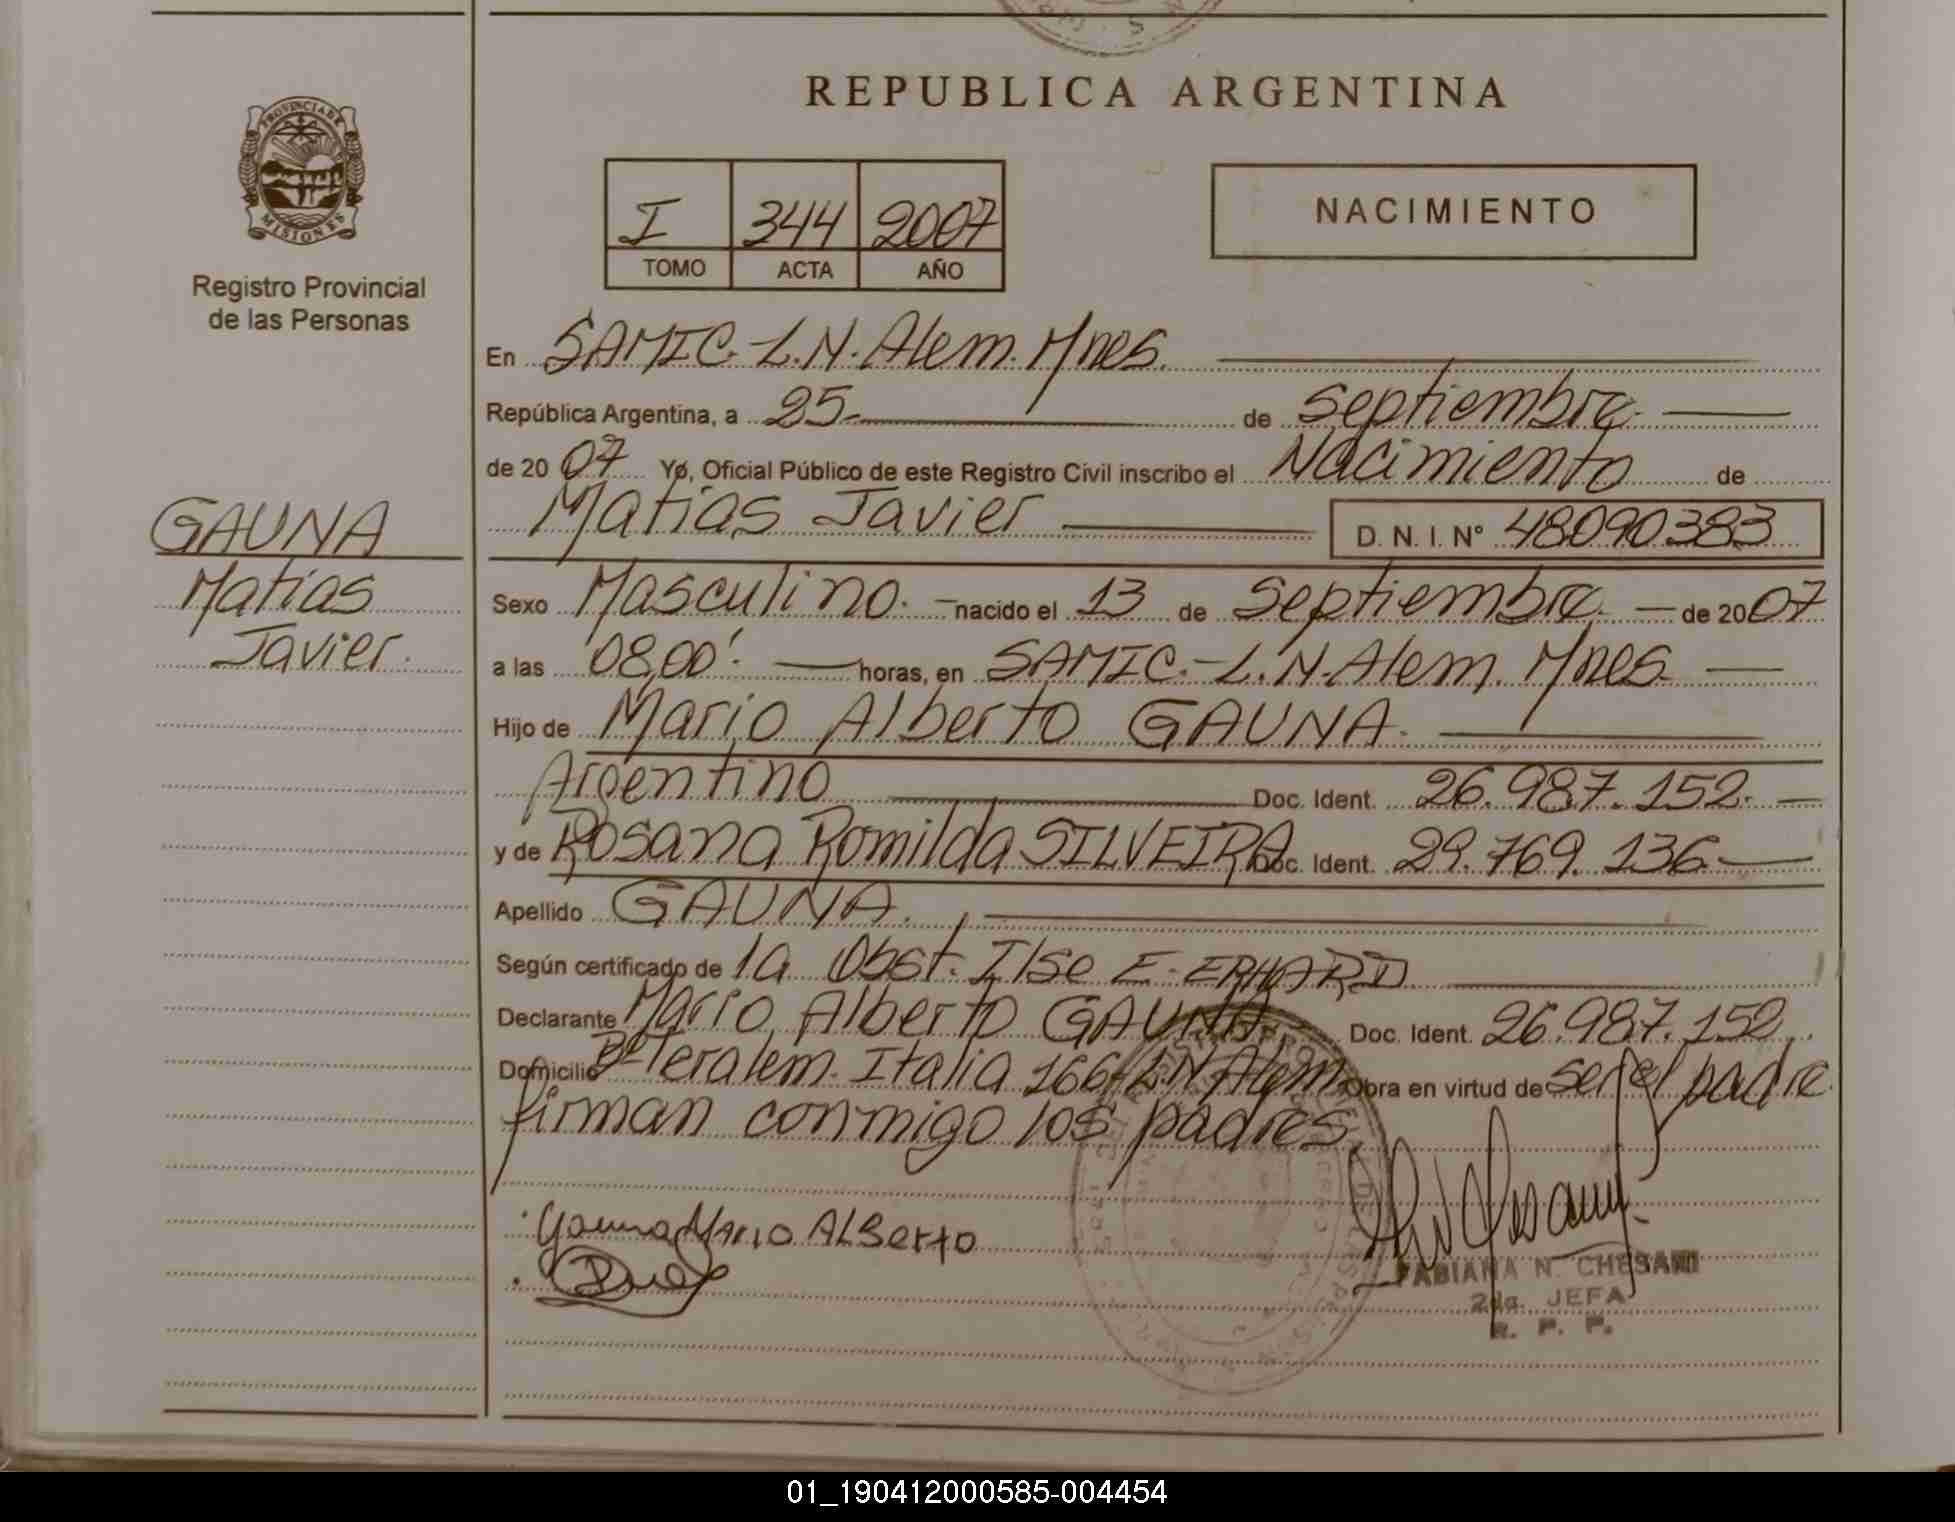 REPUBLICA ARGENTINA
PROVINCIA DE
MISIONES
Registro Provincial
de las Personas
I 344 2007
TOMO ACTA AÑO
NACIMIENTO
En SAMIC.-L.N.Alem.Mnes.
República Argentina, a 25.- de Septiembre.
de 2007 Yo, Oficial Público de este Registro Civil inscribo el Nacimiento de
Matías Javier D. N. I. Nº 48090383
GAUNA
Matías
Javier.
Sexo Masculino. - nacido el 13 de Septiembre. - de 2007
a las 08,00'. horas, en SAMIC.-L.N.Alem. Mnes.
Hijo de Mario Alberto GAUNA.
Argentino Doc. Ident. 26.987.152.-
y de Rosana Romilda SILVEIRA Doc. Ident. 29.769.136.-
Apellido GAUNA.
Según certificado de la Obst. Ilse E. ERHARD
Declarante Mario Alberto GAUNA. Doc. Ident. 26.987.152
Domicilio Bº Italia 166-L.N.Alem Obra en virtud de ser el padre.
firman conmigo los padres.
Gauna Mario ALBerto
FABIANA N. CHESANI
2da. JEFA
R. P. P.
01_190412000585-004454